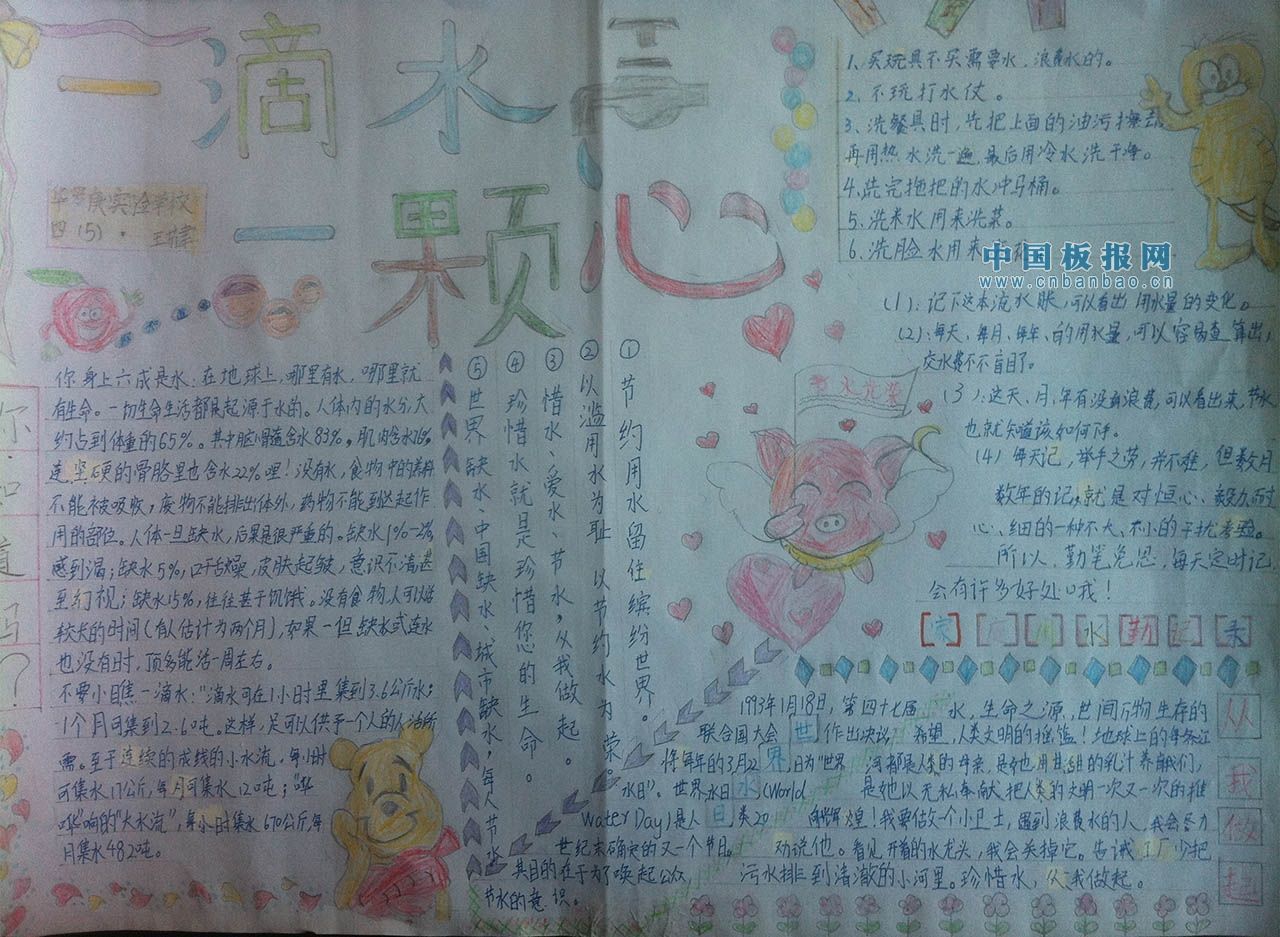 一滴水
一颗心
实验学校
四(5)·
你·知道吗?
你身上六成是水:在地球上,哪里有水,哪里就
有生命。一切生命生活都是起源于水的。人体内的水分,大
约占到体重的65%。其中脑髓含水83%,肌肉含水76%
连坚硬的骨胳里也含水22%哩!没有水,食物中的养料
不能被吸收,废物不能排出体外,药物不能到达起作
用的部位。人体一旦缺水,后果是很严重的。缺水1%-2%
感到渴;缺水5%,口干舌燥,皮肤起皱,意识不清,甚
至幻视;缺水15%,往往甚于饥饿。没有食物,人可以活
较长的时间(有人估计为两个月),如果一但缺水或连水
也没有时,顶多能活一周左右。
不要小瞧一滴水:“滴水可在1小时里集到3.6公斤水;
1个月可集到2.6吨。这样,足可以供予一个人的生活所
需。至于连续的成线的小水流,每小时
可集水17公斤,每月可集水12吨;“哗
哗”响的“大水流”,每小时集水670公斤,每
月集水482吨。
①节约用水留住缤纷世界。
②以滥用水为耻 以节约水为荣。
③惜水、爱水、节水,从我做起。
④珍惜水就是珍惜您的生命。
⑤世界缺水、中国缺水、城市缺水,每人节水
节水光荣
1、买玩具不买需要水,浪费水的。
2、不玩打水仗。
3、洗餐具时,先把上面的油污擦去,
再用热水洗一遍,最后用冷水洗干净。
4、洗完拖把的水冲马桶。
5、洗米水用来洗菜。
6、洗脸水用来
中国板报网
www.cnbanbao.cn
(1):记下这本流水账,可以看出用水量的变化。
(2):每天、每月、每年、的用水量,可以容易查算出,
交水费不盲目了。
(3):这天、月、年有没有浪费,可以看出来,节水
也就知道该如何干。
(4)每天记,举手之劳,并不难,但数月
数年的记,就是对恒心、毅力、耐
心、细的一种不大,不小的干扰考验。
所以,勤笔免思,每天定时记
会有许多好处哦!
[家][庭][用][水][勤][记][录]
1993年1月18日,第四十七届
联合国大会世作出决议:
将每年的3月22界日为“世界
水日”。世界水日水(World
Water Day)是人日类20
世纪末确定的又一个节日。
其目的在于为了唤起公众,
节水的意识。
水,生命之源,世间万物生存的
希望,人类文明的摇篮!地球上的每条江
河都是人类的母亲,是她用甘甜的乳汁养育我们,
是她以无私奉献把人类的文明一次又一次的推
向辉煌!我要做个小卫士,遇到浪费水的人,我会尽力
劝说他。看见开着的水龙头,我会关掉它。告诫工厂少把
污水排到清澈的小河里。珍惜水,从我做起。
从我做起